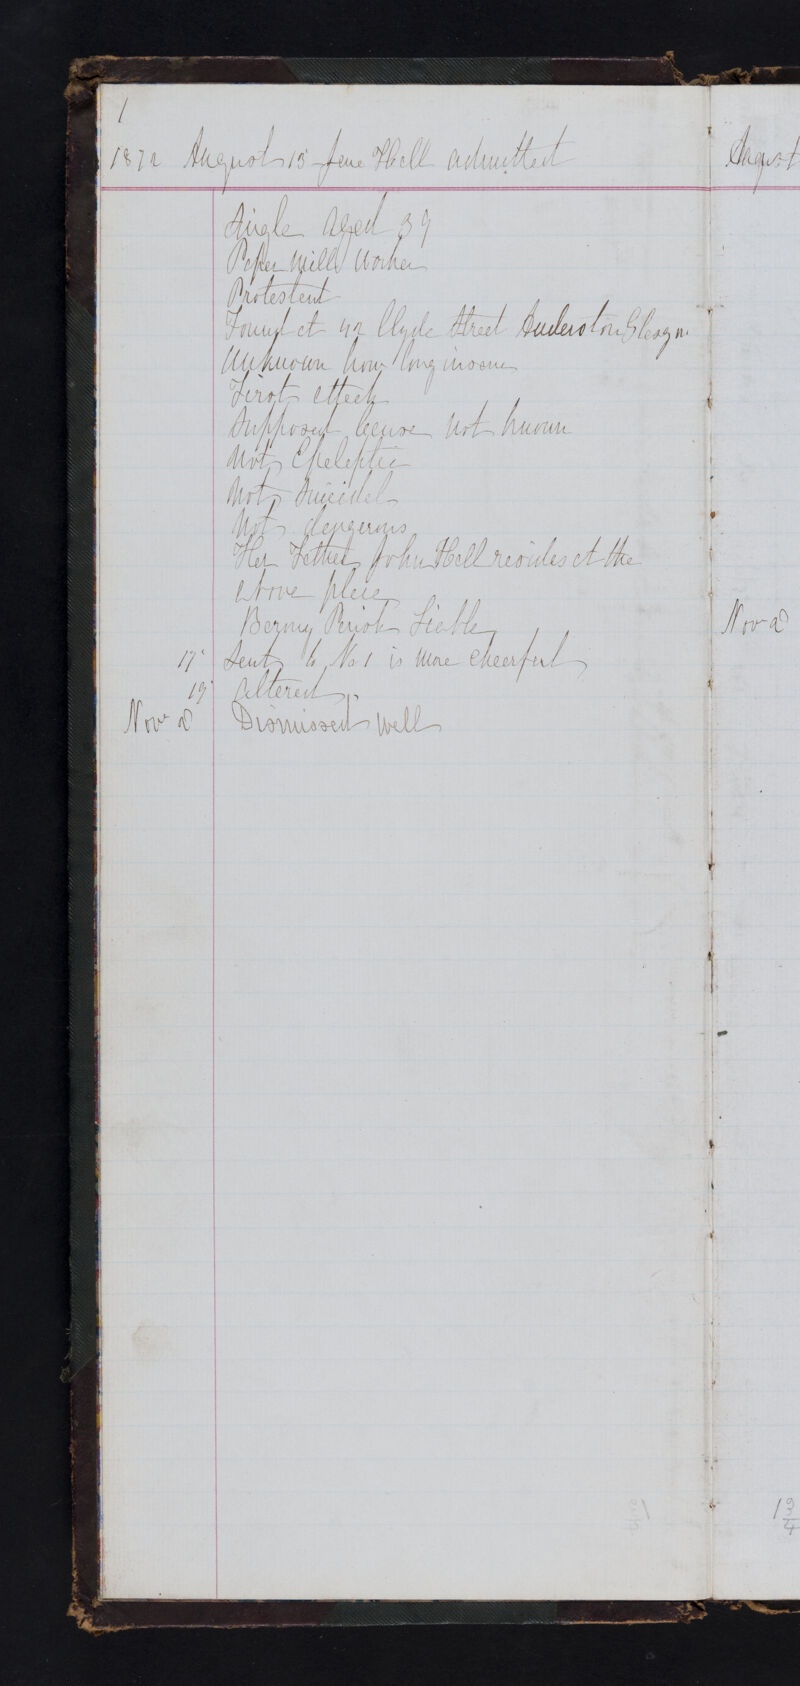 1
1872 August 15 Jane Hall admitted
Single aged 39
Paper Mill Worker
Protestant
Found at 42 Clyde Street Anderston Glasgow
Unknown how long insane
First attack
Supposed Cause not known
Not Epeleptic
Not Suicidal
Not dangerous
Her Father John Hall resides at the
above place
Barony Parish Liable
17 Sent to No 1 is more cheerful
19 Altered
Nov 2 Dismissed well
August
Nov 2